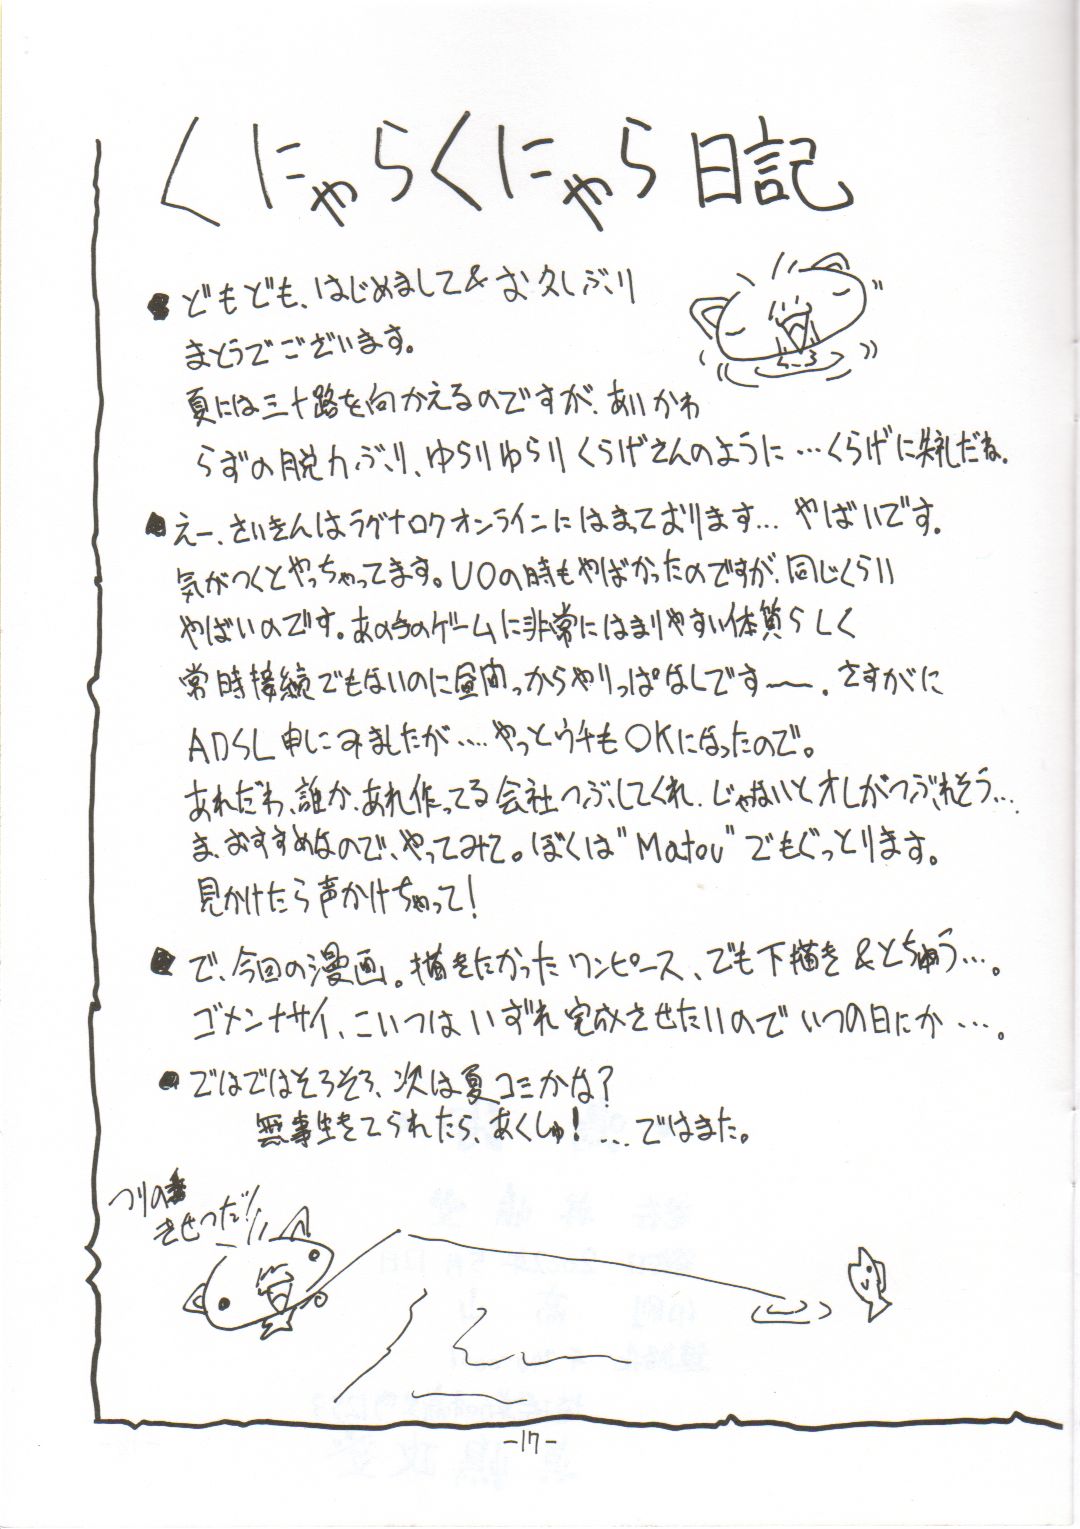 くにゃらくにゃら日記
●どもども、はじめまして&お久しぶり
まとうでございます。
夏には三十路を向かえるのですが、あいかわ
らずの脱力ぶり、ゆらりゆらりくらげさんのように…くらげに失礼だね。
●えー、さいきんはラグナロクオンラインにはまっております…やばいです。
気がつくとやっちゃってます。UOの時もやばかったのですが、同じくらい
やばいのです。あの手のゲームに非常にはまりやすい体質らしく
常時接続でもないのに昼間っからやりっぱなしです〜〜。さすがに
ADSL申しこみましたが‥‥やっとウチもOKになったので。
あれだわ、誰か、あれ作ってる会社つぶしてくれ、じゃないとオレがつぶれそう…
ま、おすすめなので、やってみて。ぼくは"Matou"でもぐっとります。
見かけたら声かけちゃって!
●で、今回の漫画。描きたかったワンピース、でも下描き&とちゅう…。
ゴメンナサイ、こいつはいずれ完成させたいのでいつの日にか…。
●ではではそろそろ、次は夏コミかな?
無事生きてられたら、あくしゅ!…ではまた。
つりの
きせつだ!!
-17-